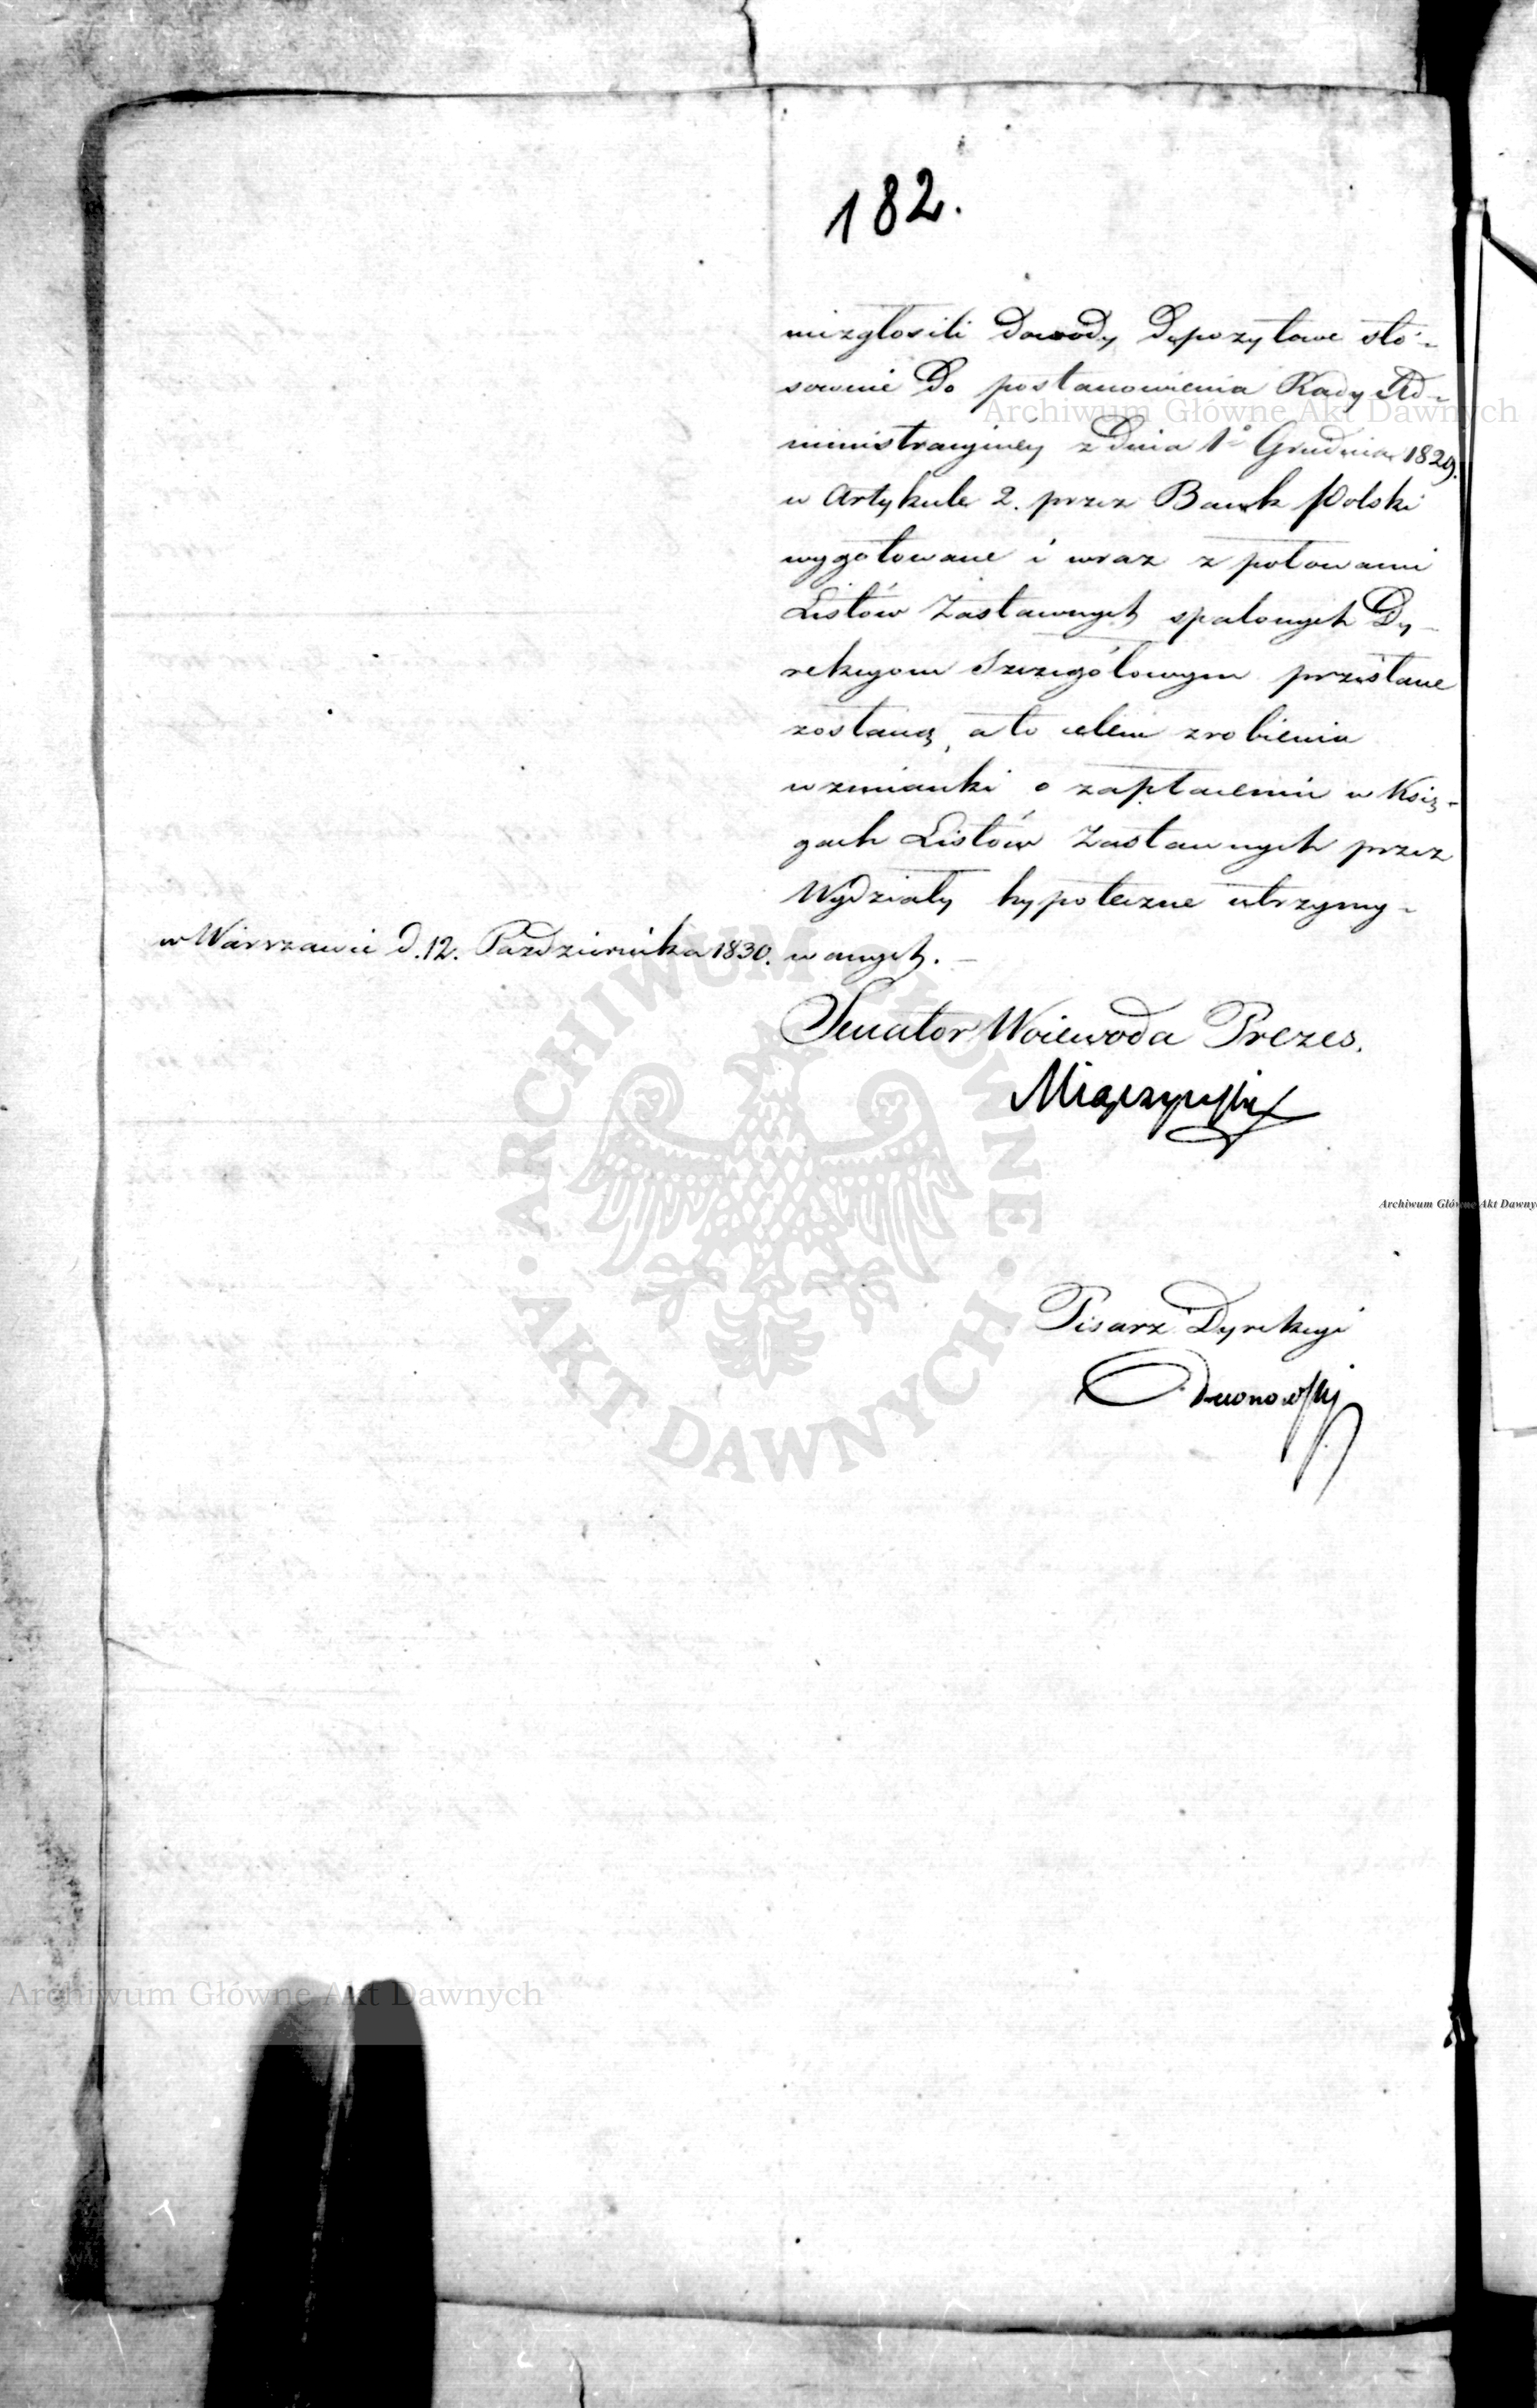 182.
niezgłosili Dowody Depozytowe sto-
sownie Do postanowienia Rady Ad-
ministracyiney z Dnia 1o Grudnia 1829.
w Artykule 2. przez Bank Polski
wygotowane i wraz z połowami
Listów Zastawnych spalonych Dy-
rekcyom Szczegółowym przesłane
zostaną, a to celem zrobienia
wzmianki o zapłaceniu w Księ-
gach Listów Zastawnych przez
Wydziały hypoteczne utrzymy-
wanych.
w Warszawie d. 12. Pazdziernika 1830.
Senator Woiewoda Prezes.
Miączyński
Pisarz Dyrekcyi
Drewnowski
Archiwum Główne Akt Dawnych
Archiwum Główne Akt Dawny
ARCHIWUM GŁÓWNE
AKT DAWNYCH
Archiwum Główne Akt Dawnych